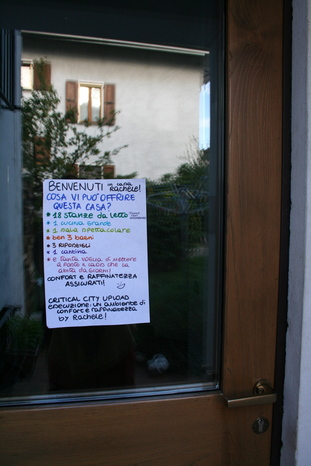 BENVENUTI in casa Rachele!
COSA VI PUO' OFFRIRE
QUESTA CASA?
* 18 stanze da letto
* 1 cucina grande
* 1 sala spettacolare
* ben 3 bagni
* 3 ripostigli
* 1 cantina
* e tanta voglia di mettere
a posto il caos che la
abita da giorni!
COMFORT E RAFFINATEZZA
ASSICURATI!
CRITICAL CITY UPLOAD
esecuzione: un ambiente di
comfort e raffinatezza
by Rachele!